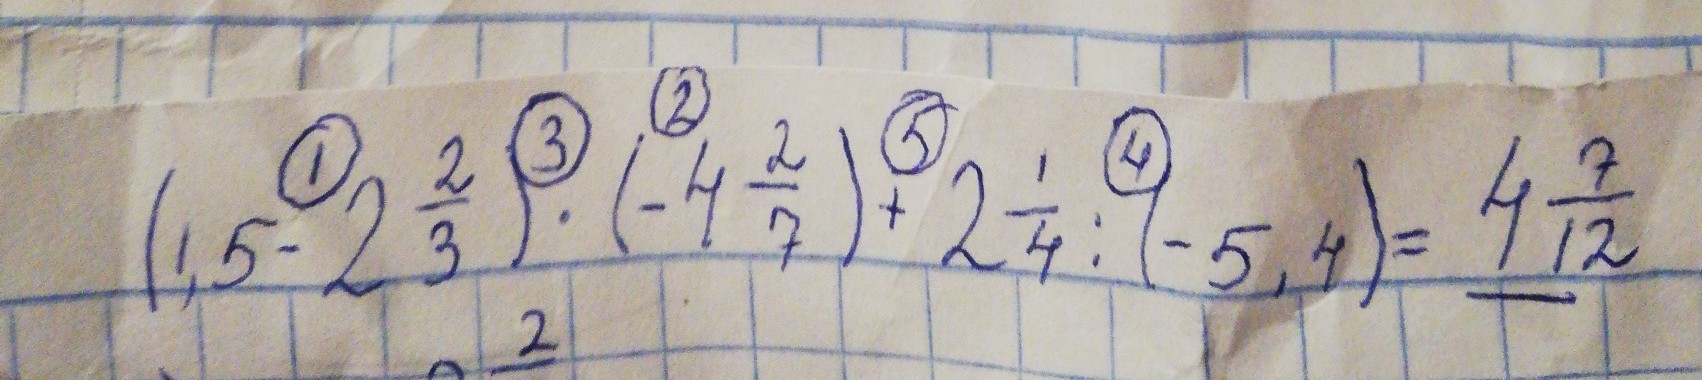 (1,5 ① - 2 2/3) ③ · ② (-4 2/7) ⑤ + 2 1/4 ④ : (-5,4) = 4 7/12
2